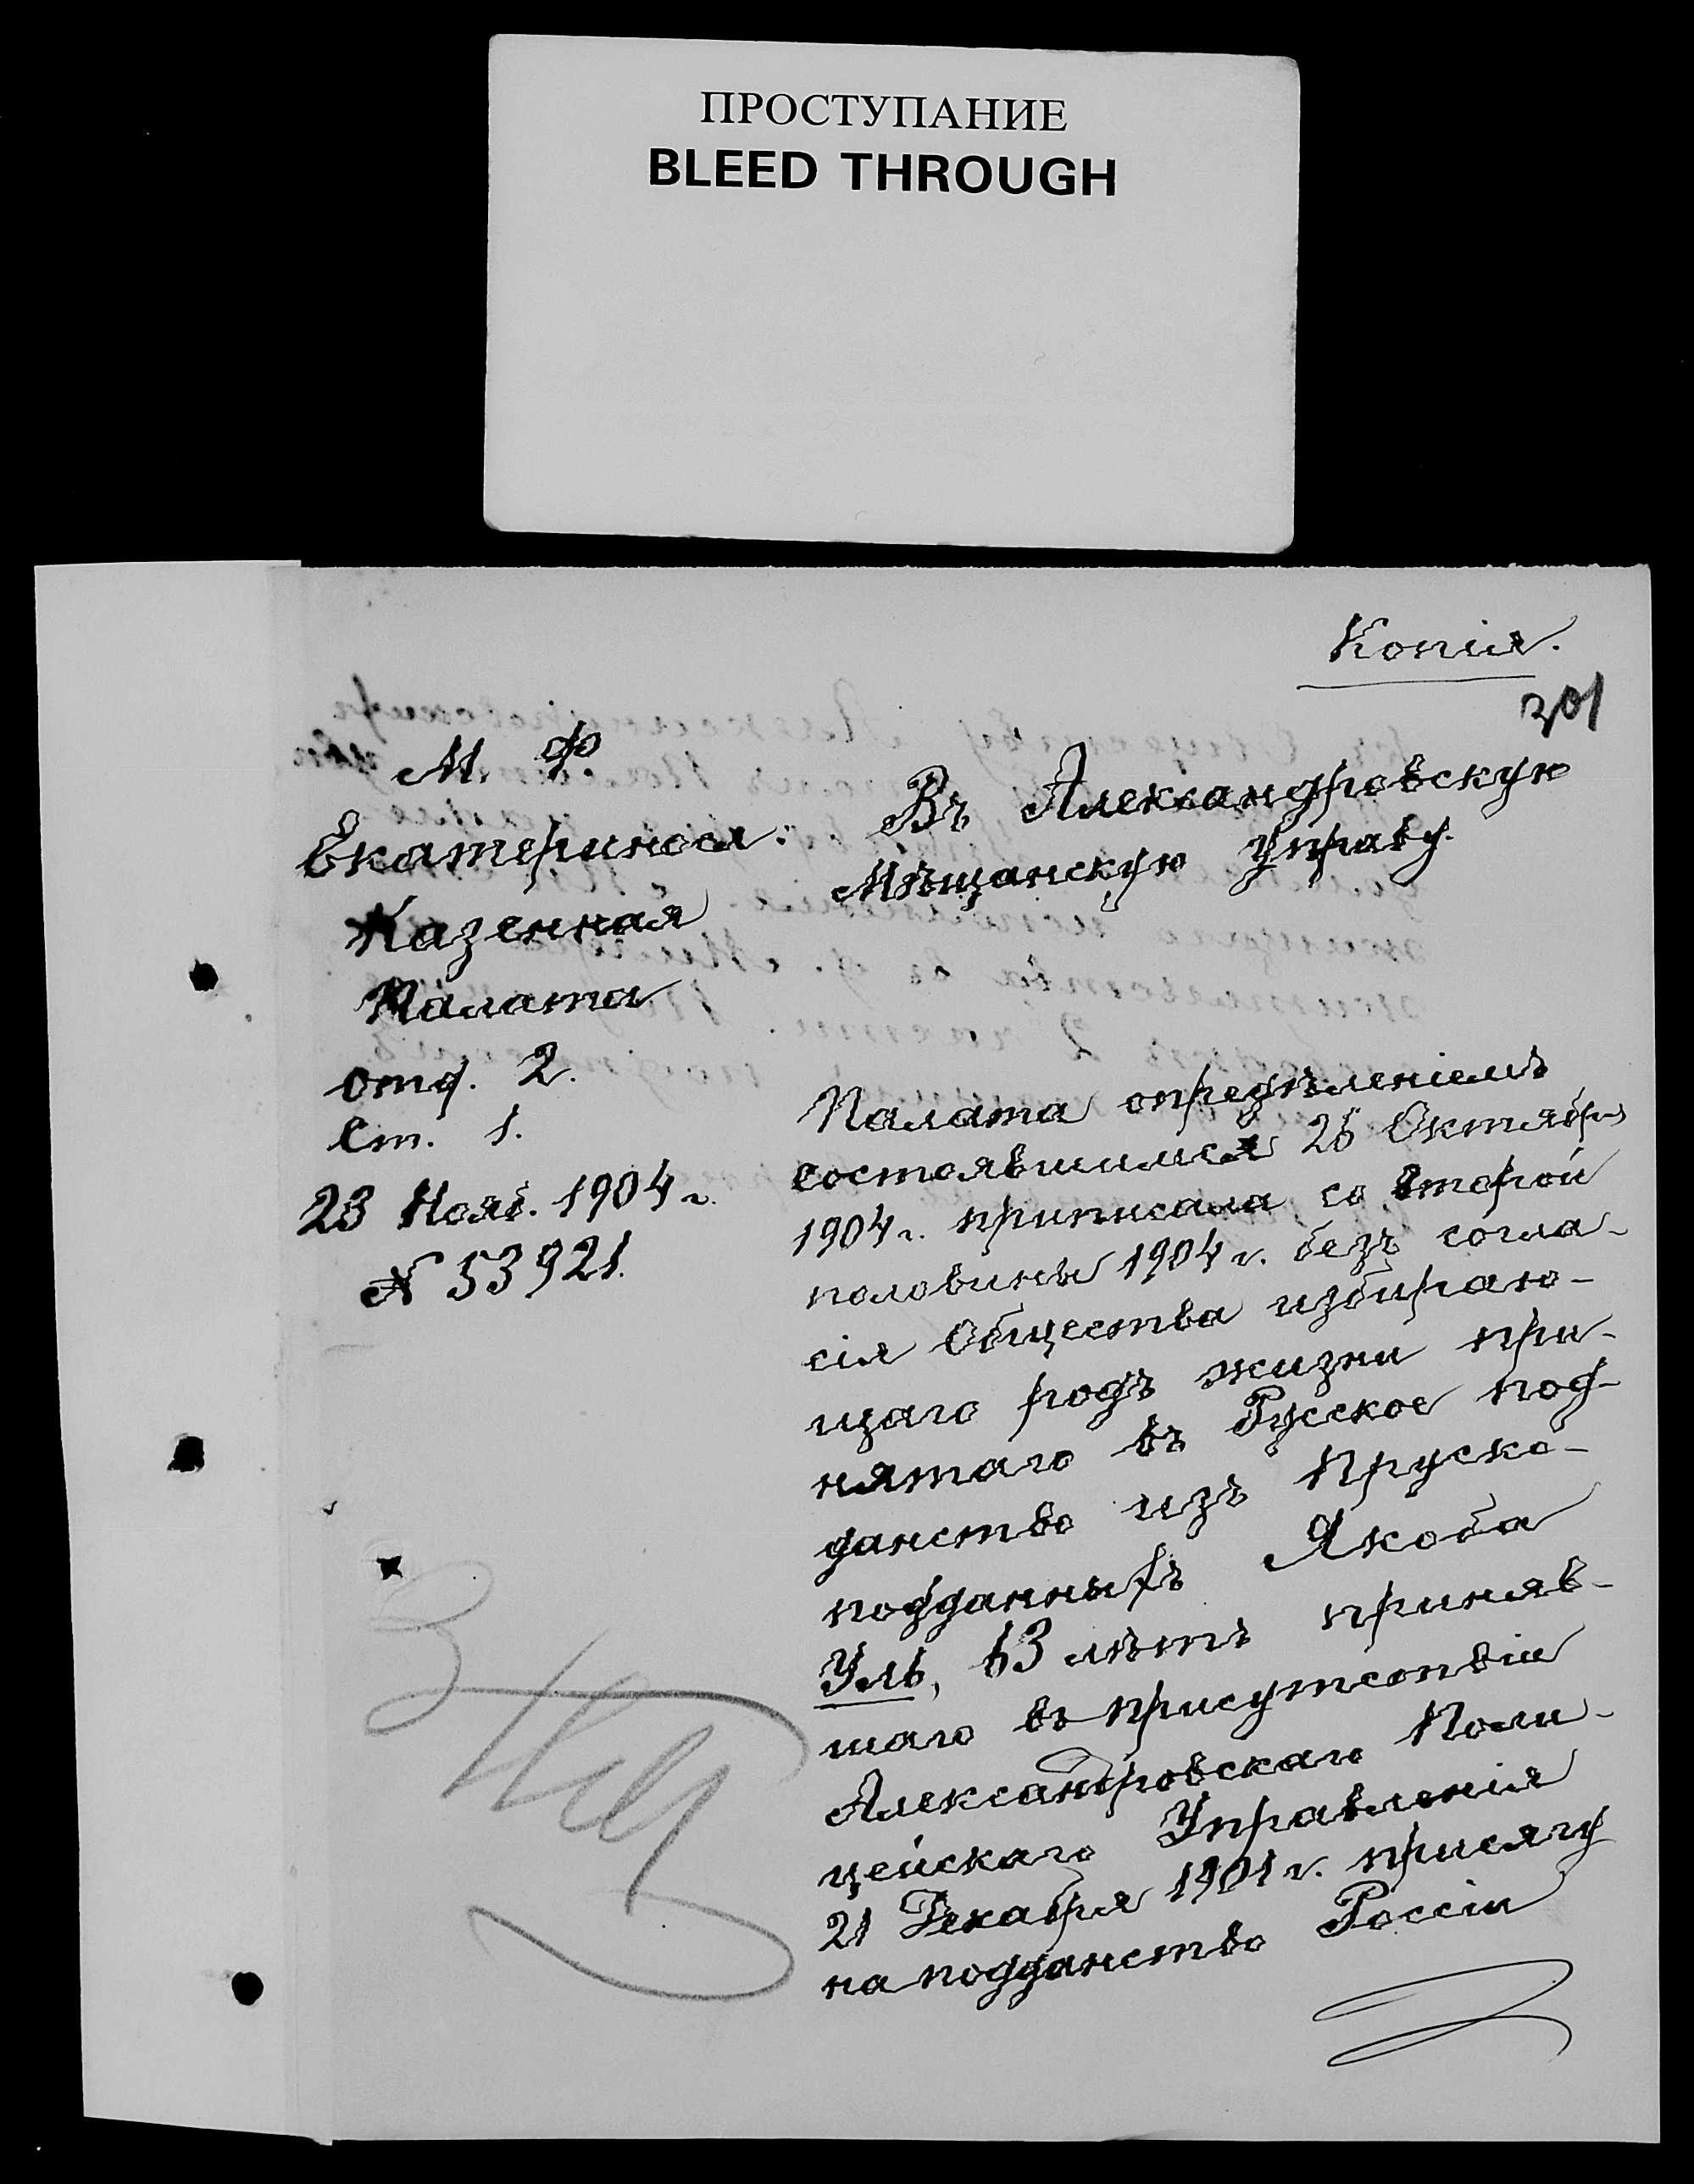 ПРОСТУПАНИЕ
BLEED THROUGH
Копія.
301
М. Ф.
Екатеринося.
Казенная
Палата
Отд. 2.
Ст. 1.
23 Нояб. 1904 г.
№ 53921.
Въ Александровскую
Мѣщанскую Управу.
Палата опредѣленіемъ
состоявшимся 26 Октября
1904 г. приписала со второй
половины 1904 г. безъ согла-
сія Общества избираю-
щаго родъ жизни при-
нятаго въ Русское под-
данство изъ Прусско-
подданныхъ Якоба
Уль, 63 лѣтъ приняв-
шаго въ присутствіи
Александровскаго Поли-
цейскаго Управленія
21 Декабря 1901 г. присягу
на подданство Россіи